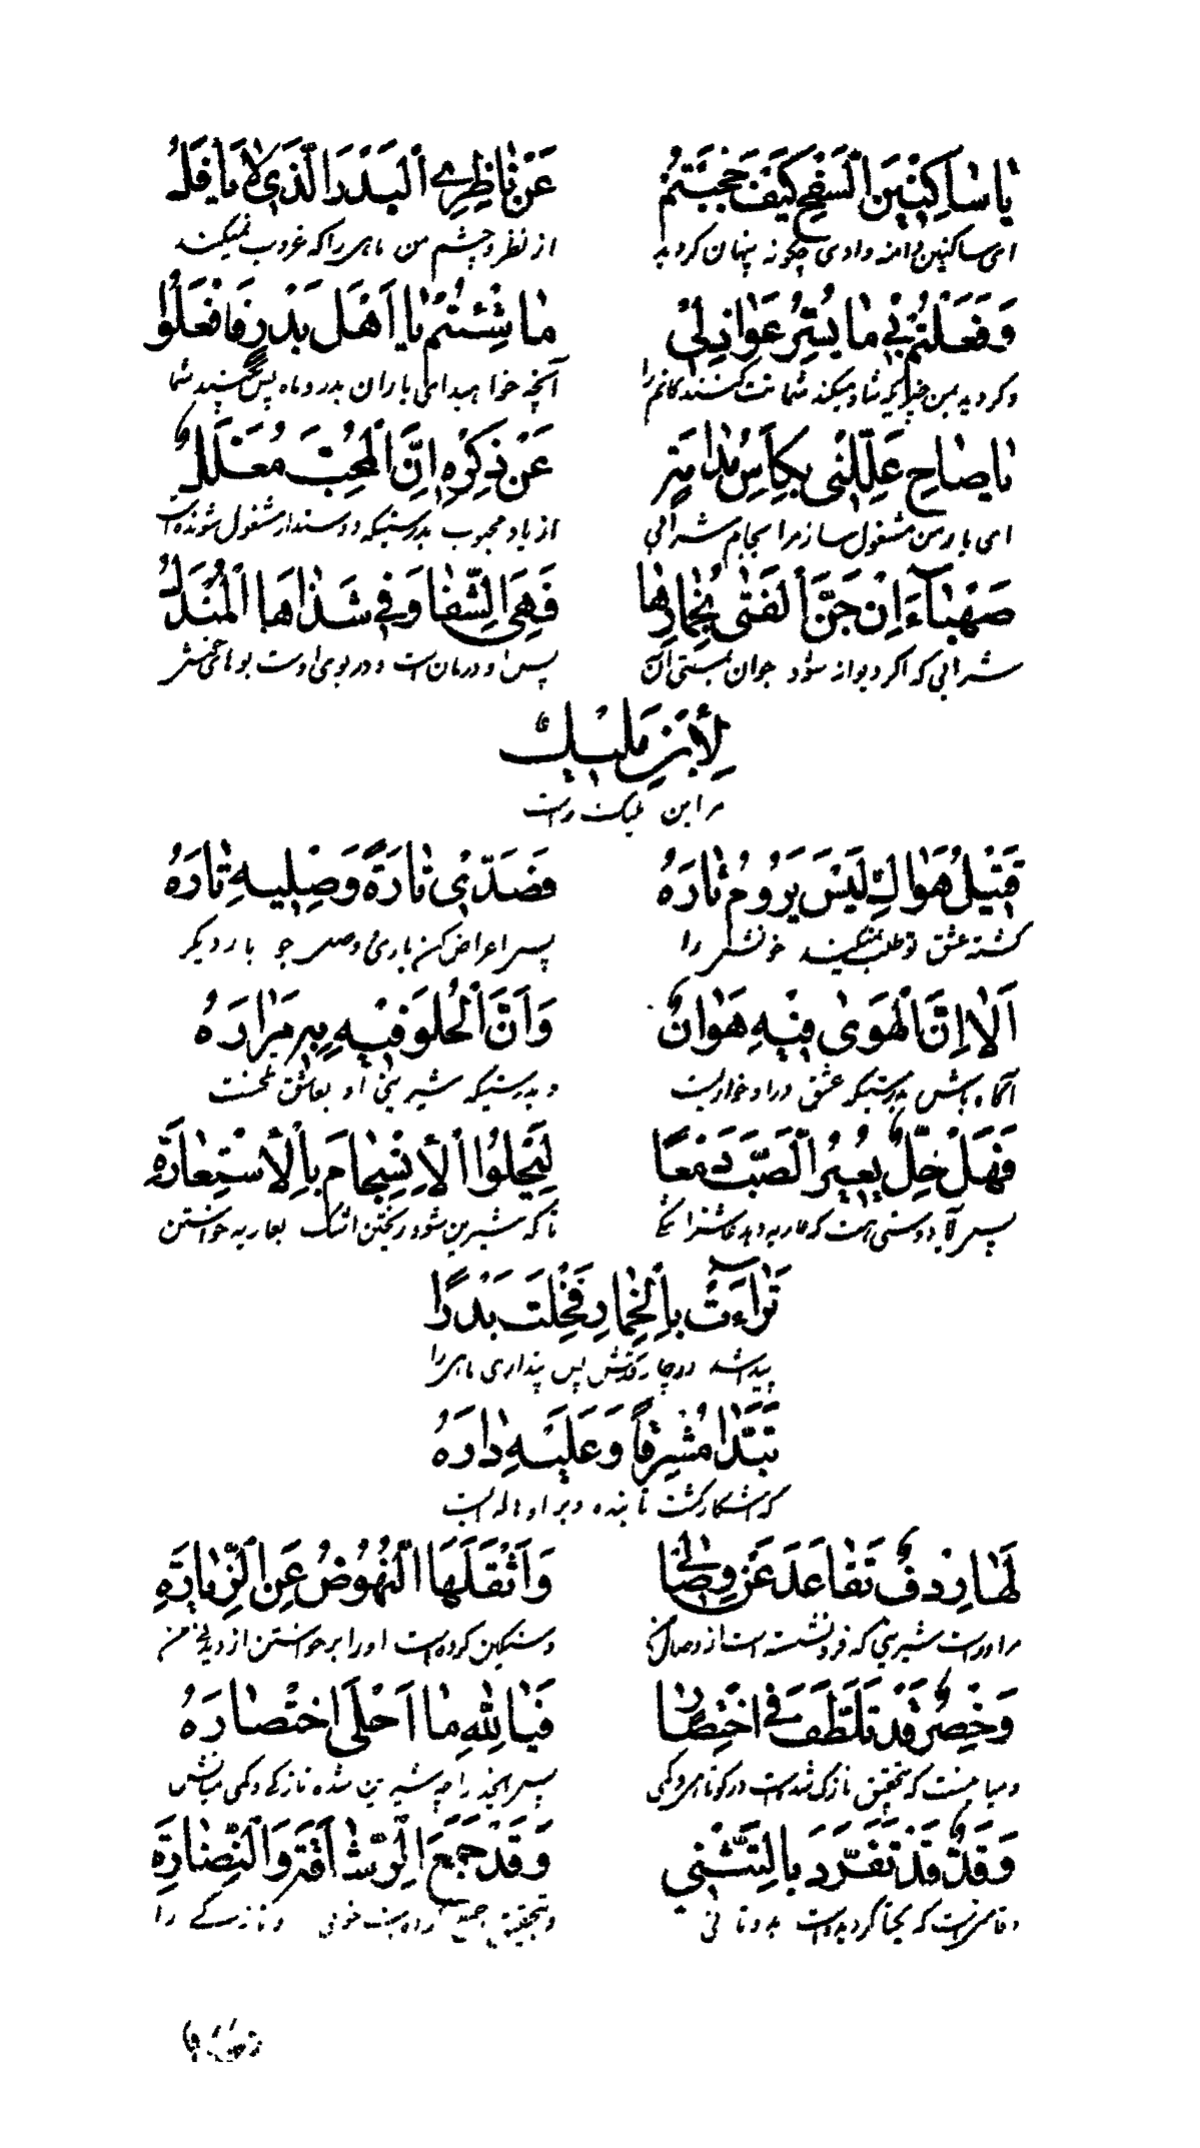 يٰا سٰاكِنينَ السَّفحِ كَيفَ حَجَبتُمُ عَن نٰاظِرِي البَدرَ الَّذي لا يَأفَلُ
ای ساکنین دامنه وادی چگونه پنهان کردید از نظر و چشم من ماهی را که غروب نمیکند
وَفَعَلتُمُ بي مٰا يُسِرُّ عَوٰاذِلي مٰا شِئتُمُ يٰا اَهلَ بَدرٍ فَافعَلُوا
وکردید بمن چیزیکه شاد میکند شماتت کنندگانم را آنچه خواهید ای یاران بدر و ماه پس بکنید شما
يٰا صٰاحِ عَلِّلني بِكَأسِ مُدٰامَةٍ عَن ذِكرِهِ اِنَّ المُحِبَّ مُعَلَّلٌ
ای یار من مشغول ساز مرا بجام شرابی از یاد محبوب بدرستیکه دوستدار مشغول شونده است
صَهبٰآءَ اِن جَنَّ الفَتٰى بِخُمارِهٰا فَهِيَ الشِّفٰا وَفي شَذٰاهَا المُندَلُ
شرابی که اگر دیوانه شود جوان بمستی آن پس او درمان است و در بوی اوست
لِأبنِ مَليكٍ
مر ابن ملیک راست
قَتيلُ هَوٰاكِ لَيسَ يَرُومُ ثٰارَهُ فَصَدّي تٰارَةً وَصِليهِ تٰارَهُ
کشته عشق تو طلب نمیکند خونش را پس اعراض کن باری و وصل جو بار دیگر
اَلاٰ اِنَّ الهَوىٰ فيهِ هَوٰانٌ وَاَنَّ الحُلوَ فيهِ بِهِ مَرٰارَهُ
آگاه باش بدرستیکه عشق در او خواریست و بدرستیکه شیرینی او بعاشق تلخست
فَهَل خِلٌّ يُعيرُ الصَّبَّ دَمعًا لِيَحلُوا الأِنسِجٰامَ بِالأِستِعٰارَةِ
پس آیا دوستی هست که عاریه دهد عاشق را اشکی تا که شیرین شود ریختن اشک بعاریه خواستن
تَرٰاءَت بِالخِمٰارِ فَخِلتَ بَدرًا
پیدا شد پس پنداری ماهی را
تَبَدّٰا مُشرِقاً وَعَلَيهِ دٰارَهُ
که آشکار گشت تابنده و بر او هاله است
لَهٰا رِدفٌ تَقٰاعَدَ عَن وِصٰالي وَاَثقَلَهَا النُّهُوضُ عَنِ الزِّيٰارَةِ
مر اوراست سرینی که فرو نشسته است از وصال من و سنگین کرده است او را برخواستن از دیدن من
وَخَصرٌ قَد تَلَطَّفَ في اختِصٰارٍ فَيٰا لِلّٰهِ مٰا اَحلَى اختِصٰارَهُ
و میانیست که بتحقیق نازک شده است در کوتاهی و کمی پس ایخدا چه شیرین شده نازکی و کمی میانش
وَقَدٌّ قَد تَفَرَّدَ بِالتَّثَنّي وَقَد جَمَعَ الرَّشٰاقَةَ وَالنَّضٰارَةِ
و قامتیست که یکتا گردیده است بدوتائی و بتحقیق جمع کرده است خوبی و نازکی را